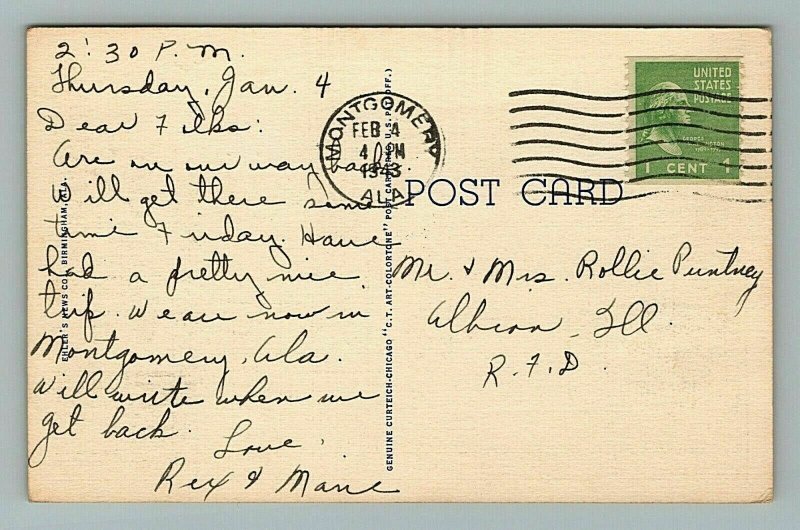 2:30 P.M.
Thursday, Jan. 4
Dear Folks:
Are on our way back.
Will get there some
time Friday. Have
had a pretty nice
trip. We are now in
Montgomery, Ala.
Will write when we
get back.
Love,
Rex & Marie
EHLER'S NEWS CO., BIRMINGHAM, ALA.
GENUINE CURTEICH-CHICAGO "C.T. ART-COLORTONE" POST CARD (REG. U.S. PAT. OFF.)
MONTGOMERY
FEB 4
4 PM
1943
ALA.
UNITED
STATES
POSTAGE
GEORGE
WASHINGTON
1 CENT 1
POST CARD
Mr. & Mrs. Rollie Puntney
Albion, Ill.
R.F.D.